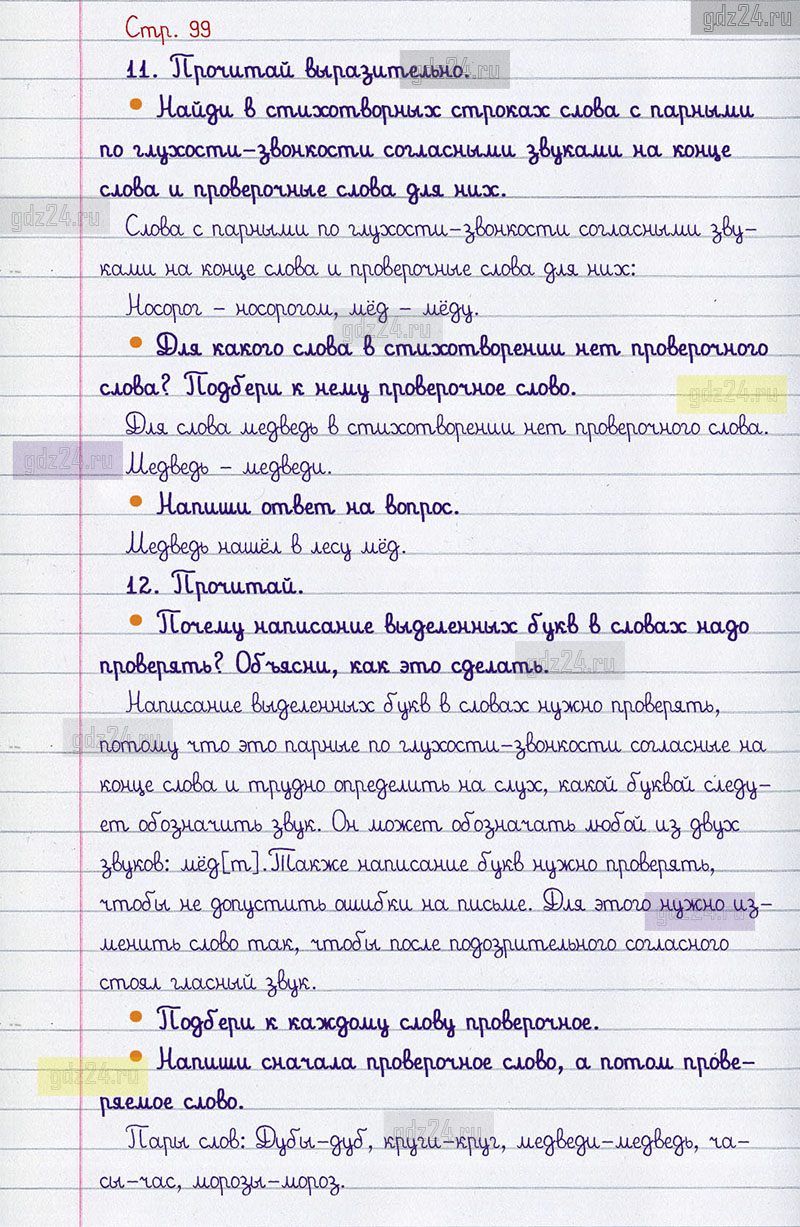 gdz24.ru
Стр. 99
11. Прочитай выразительно.
gdz24.ru
• Найди в стихотворных строках слова с парными
по глухости-звонкости согласными звуками на конце
слова и проверочные слова для них.
gdz24.ru
Слова с парными по глухости-звонкости согласными зву-
ками на конце слова и проверочные слова для них:
Носорог - носорогом, мёд - мёду.
gdz24.ru
• Для какого слова в стихотворении нет проверочного
слова? Подбери к нему проверочное слово.
gdz24.ru
Для слова медведь в стихотворении нет проверочного слова.
gdz24.ru
Медведь - медведи.
• Напиши ответ на вопрос.
Медведь нашёл в лесу мёд.
12. Прочитай.
• Почему написание выделенных букв в словах надо
проверять? Объясни, как это сделать.
gdz24.ru
Написание выделенных букв в словах нужно проверять,
gdz24.ru
потому что это парные по глухости-звонкости согласные на
конце слова и трудно определить на слух, какой буквой следу-
ет обозначить звук. Он может обозначать любой из двух
звуков: мёд[т].Также написание букв нужно проверять,
чтобы не допустить ошибки на письме. Для этого нужно из-
gdz24.ru
менить слово так, чтобы после подозрительного согласного
стоял гласный звук.
• Подбери к каждому слову проверочное.
• Напиши сначала проверочное слово, а потом прове-
gdz24.ru
ряемое слово.
gdz24.ru
Пары слов: Дубы-дуб, круги-круг, медведи-медведь, ча-
сы-час, морозы-мороз.